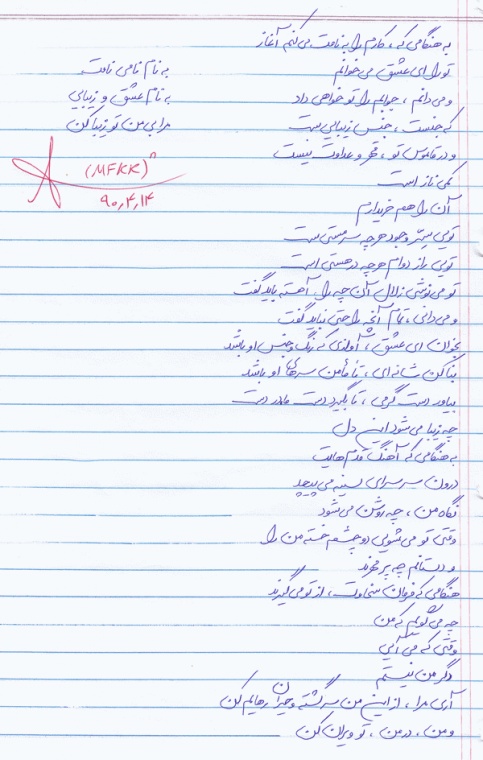 به هنگامی که، کارم را به نامت می کنم آغاز
تو را ای عشق می خوانم
و می دانم، جوابم را تو خواهی داد
که جنست، جنس زیبایی ست
و در قاموس تو، قهر و عداوت نیست
کمی ناز است
آن را هم خریدارم
تویی سِرّ وجود هر چه سرمستی ست
تویی راز دوام هر چه در هستی است
تو می نوشی زلال آن چه را، آهسته باید گفت
و می دانی، تمام آنچه را حتی نباید گفت
بخوان ای عشق، آوازی که رنگ و جنس او باشد
بنا کن شانه ای، تا مأمن سرهای او باشد
بیاور دست گرمی، تا بگیرد دست مادر دست
چه زیبا می شود این دل
به هنگامی که آهنگ قدم هایت
درون سرسرای سینه می پیچد
نگاه من، چه روشن می شود
وقتی تو می شویی دو چشم خسته من را
و دستانم چه پر مهرند
هنگامی که فرمان سخاوت، از تو می گیرند
چه می گویم که من
وقتی که می آیی
دگر من نیستم
آری مرا، از این من سرگشته و حیران رهایم کن
و من، در من، تو ویران کن
به نام نامی نامت
به نام عشق و زیبایی
مرا بی من تو زیبا کن
(MFKK)ⁿ
۹۰,۴,۱۴